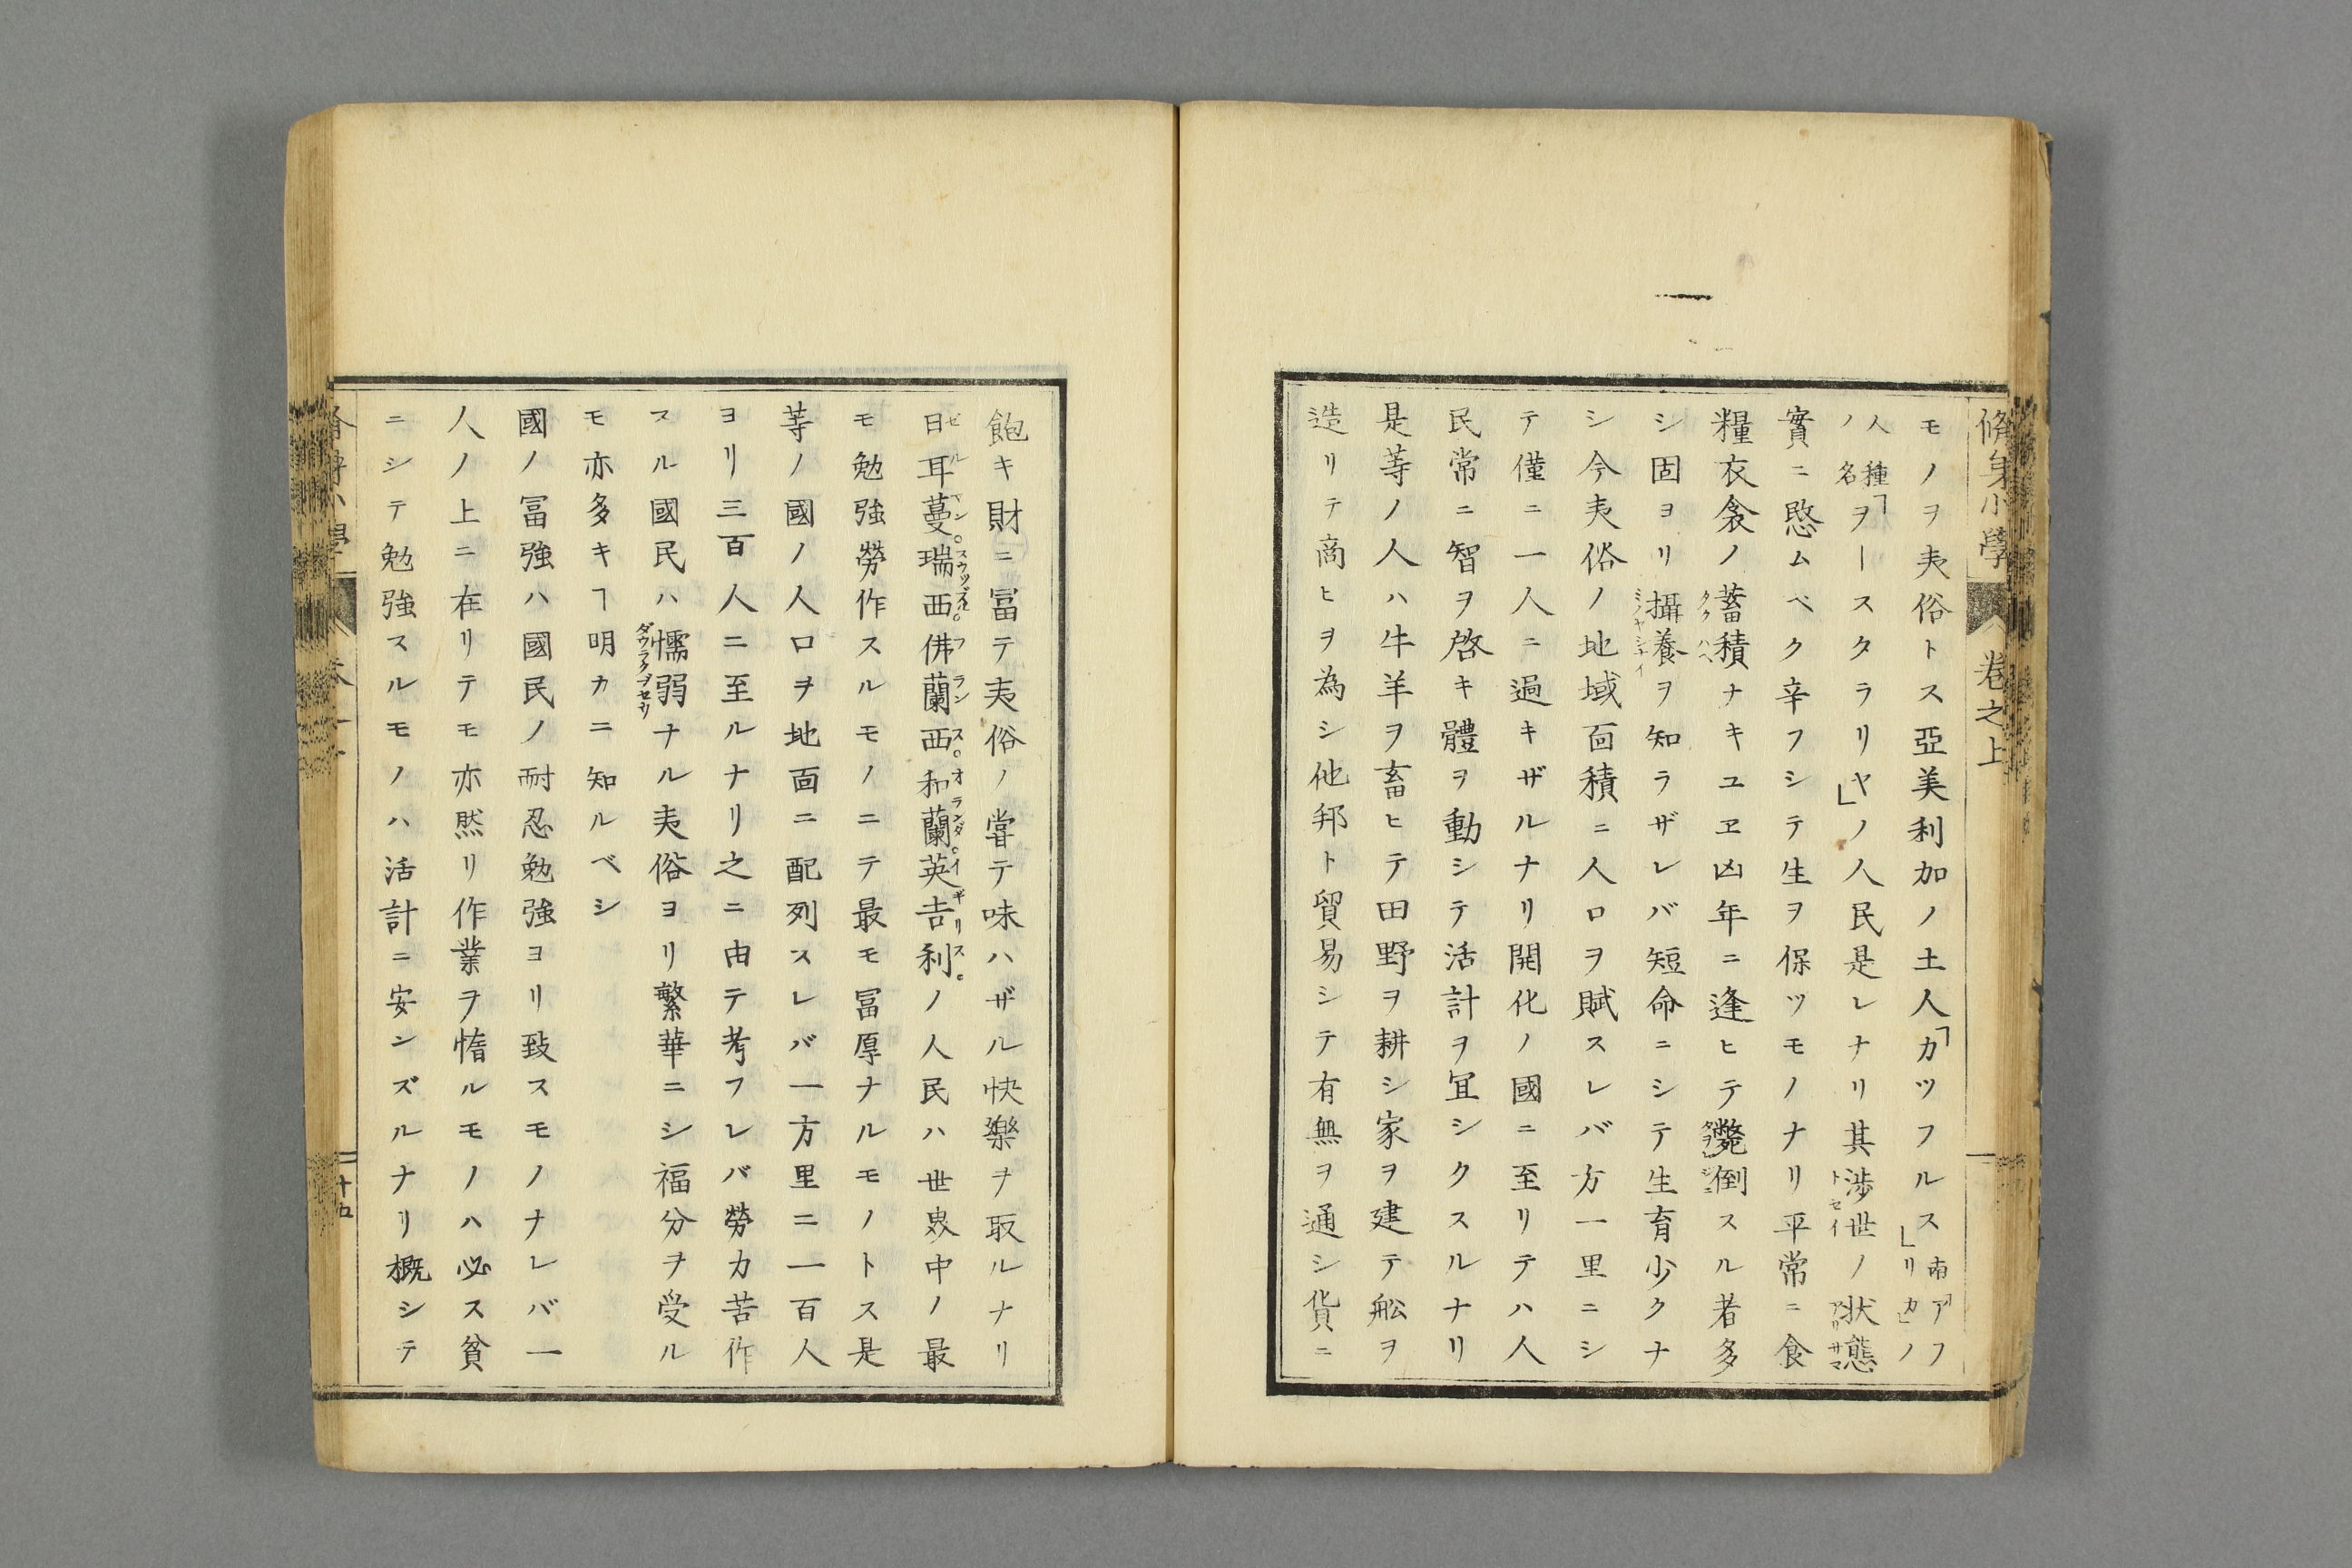 脩身小學 卷之上
モノヲ夷俗トス亞美利加ノ土人「カツフルス」南「アフリカ」ノ
人種ノ名「ヲースタラリヤ」ノ人民是レナリ其渉世ノ状態
實ニ愍ムベク辛フシテ生ヲ保ツモノナリ平常ニ食
糧衣衾ノ蓄積ナキユヱ凶年ニ逢ヒテ斃倒スル者多
シ固ヨリ攝養ヲ知ラザレバ短命ニシテ生育少クナ
シ今夷俗ノ地域面積ニ人口ヲ賦スレバ方一里ニシ
テ僅ニ一人ニ過キザルナリ開化ノ國ニ至リテハ人
民常ニ智ヲ啓キ體ヲ動シテ活計ヲ冝シクスルナリ
是等ノ人ハ牛羊ヲ畜ヒテ田野ヲ耕シ家ヲ建テ舩ヲ
造リテ商ヒヲ為シ他邦ト貿易シテ有無ヲ通シ貨ニ
飽キ財ニ冨テ夷俗ノ甞テ味ハザル快樂ヲ取ルナリ
日耳蔓瑞西佛蘭西和蘭英吉利ノ人民ハ世界中ノ最
モ勉強勞作スルモノニテ最モ冨厚ナルモノトス是
等ノ國ノ人口ヲ地面ニ配列スレバ一方里ニ一百人
ヨリ三百人ニ至ルナリ之ニ由テ考フレバ勞力苦作
スル國民ハ懦弱ナル夷俗ヨリ繁華ニシ福分ヲ受ル
モ亦多キヿ明カニ知ルベシ
國ノ冨強ハ國民ノ耐忍勉強ヨリ致スモノナレバ一
人ノ上ニ在リテモ亦然リ作業ヲ惰ルモノハ必ス貧
ニシテ勉強スルモノハ活計ニ安ンズルナリ概シテ